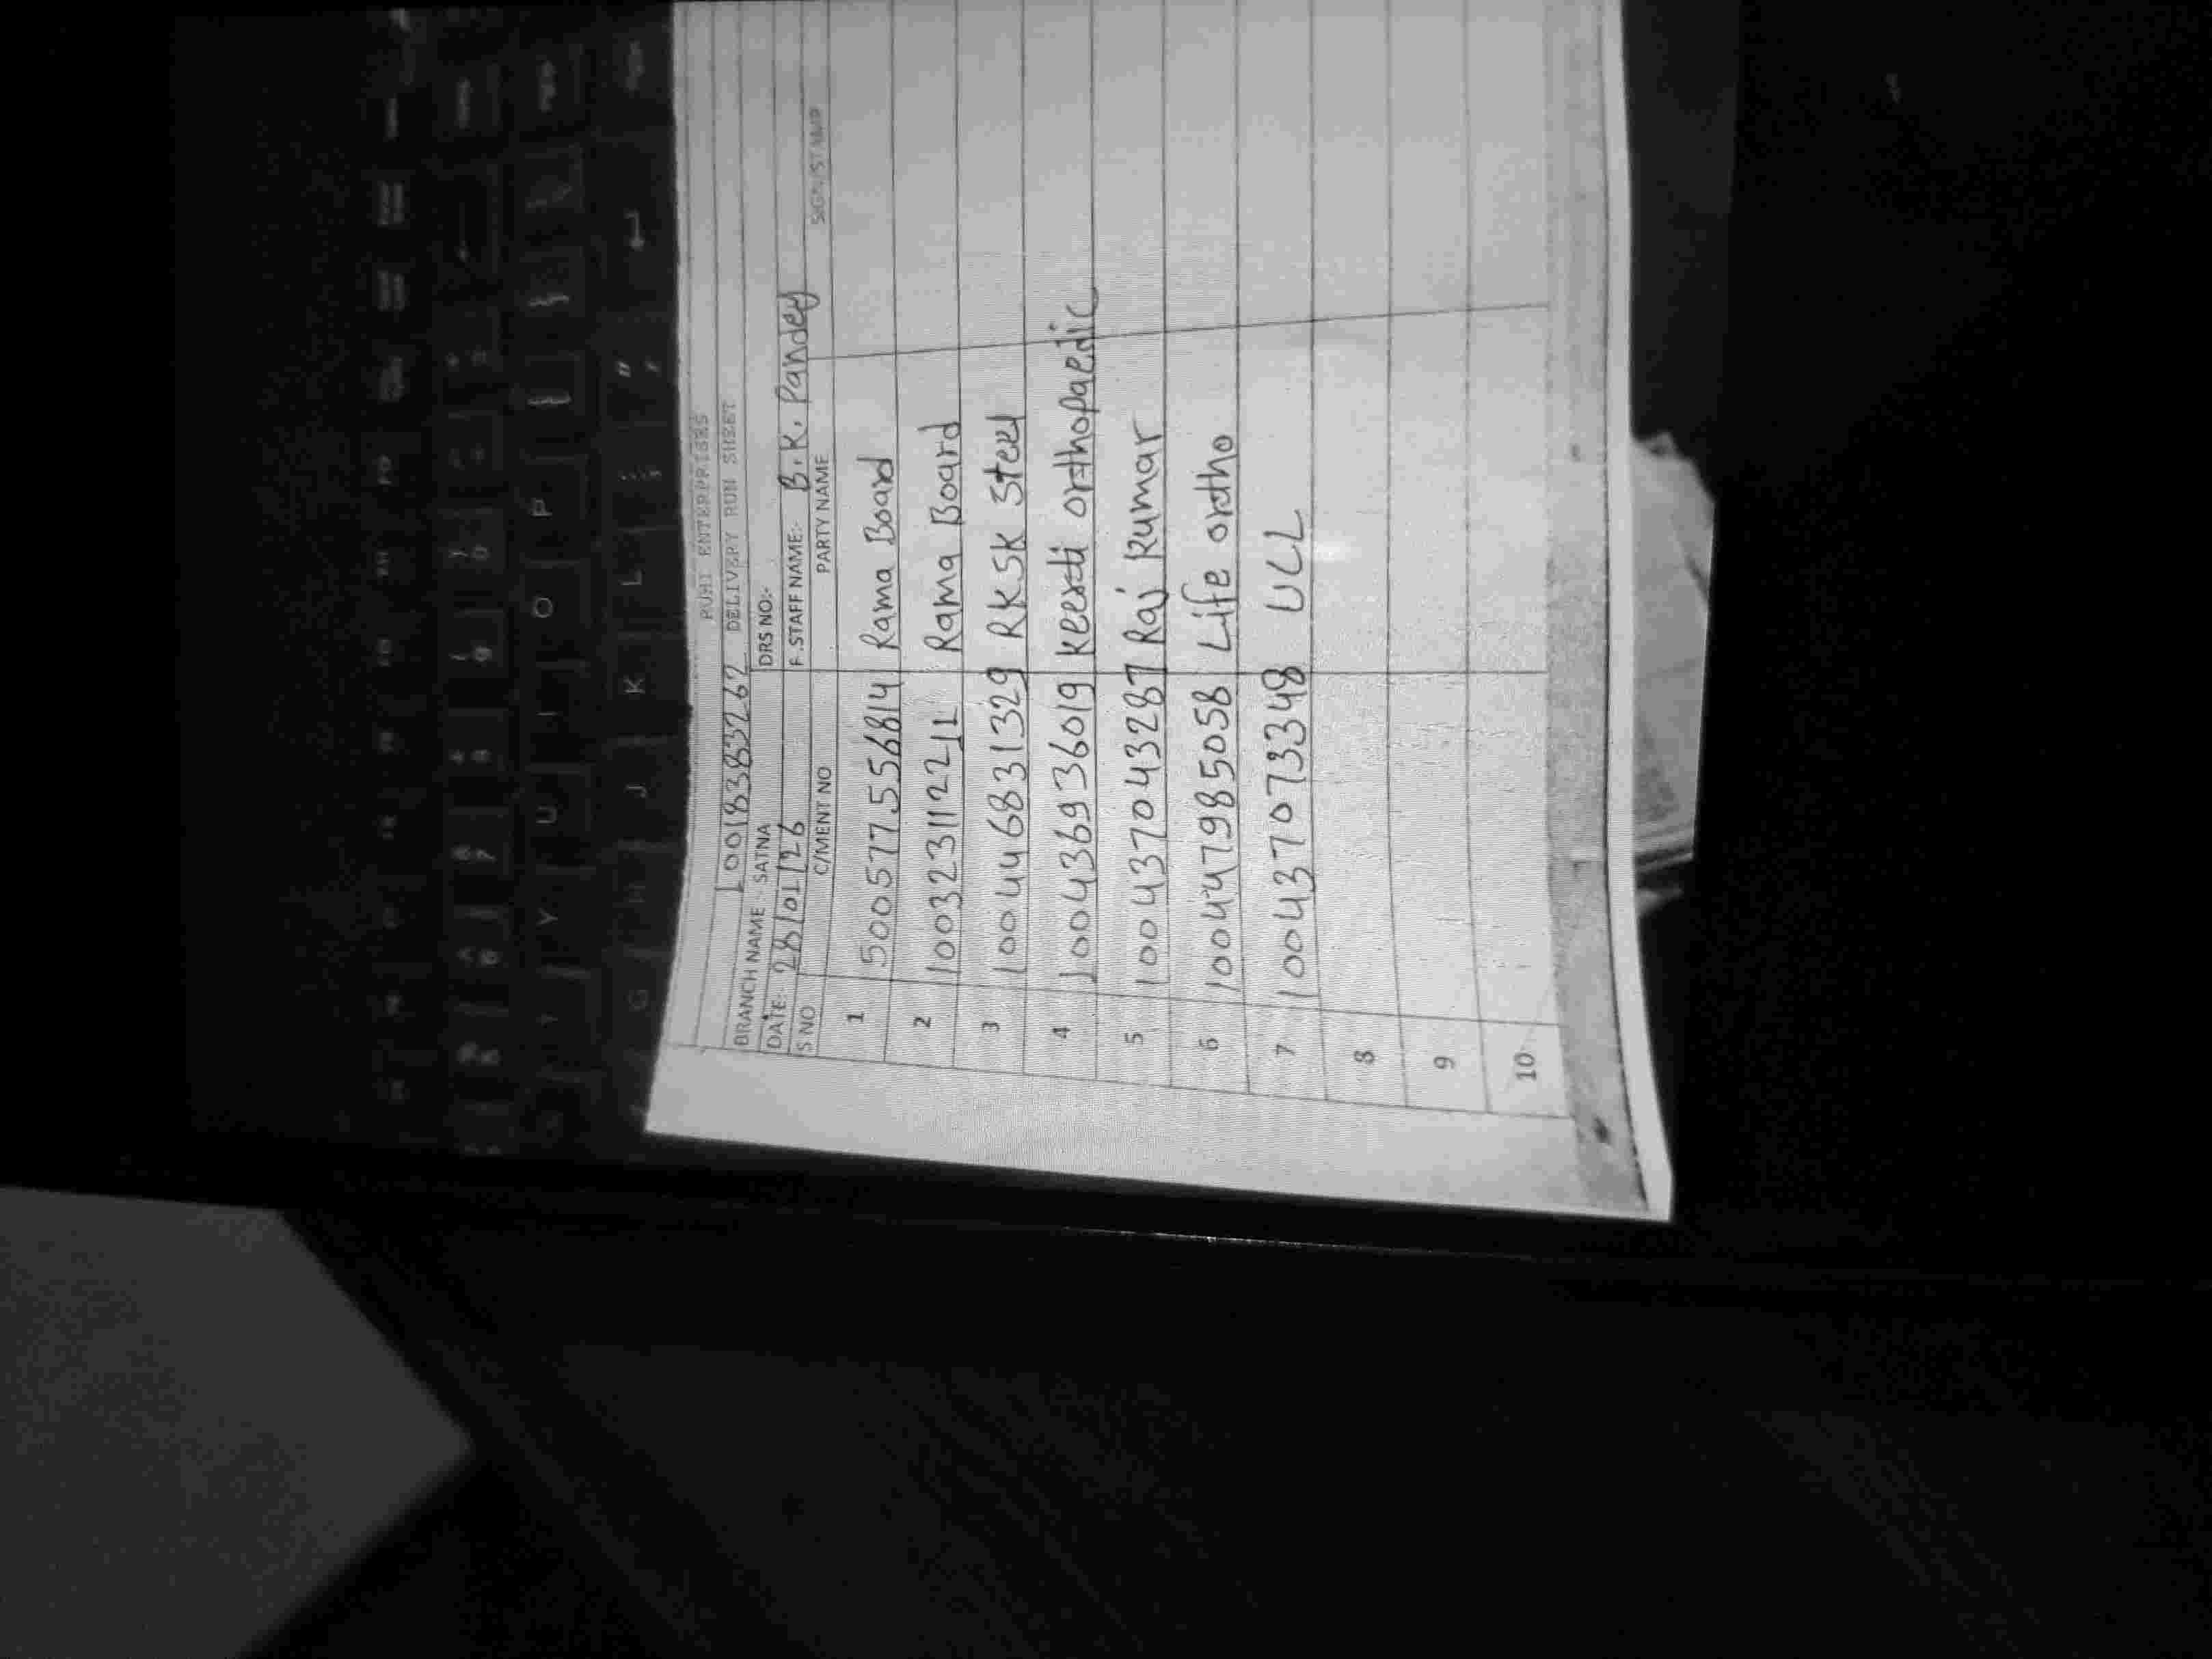 PUHI ENTERPRISES
100183853262 DELIVERY RUN SHEET
BRANCH NAME SATNA DRS NO:-
DATE:- 28/01/26 F.STAFF NAME:- B.K. Pandey
S NO C/MENT NO PARTY NAME SIGN/STAMP
1 500577556814 Rama Board
2 100323112211 Rama Board
3 100446831329 RKSK Steel
4 100436936019 Keerti orthopaedic
5 100437043287 Raj Kumar
6 100447985058 Life ortho
7 100437073348 UCL
8
9
10